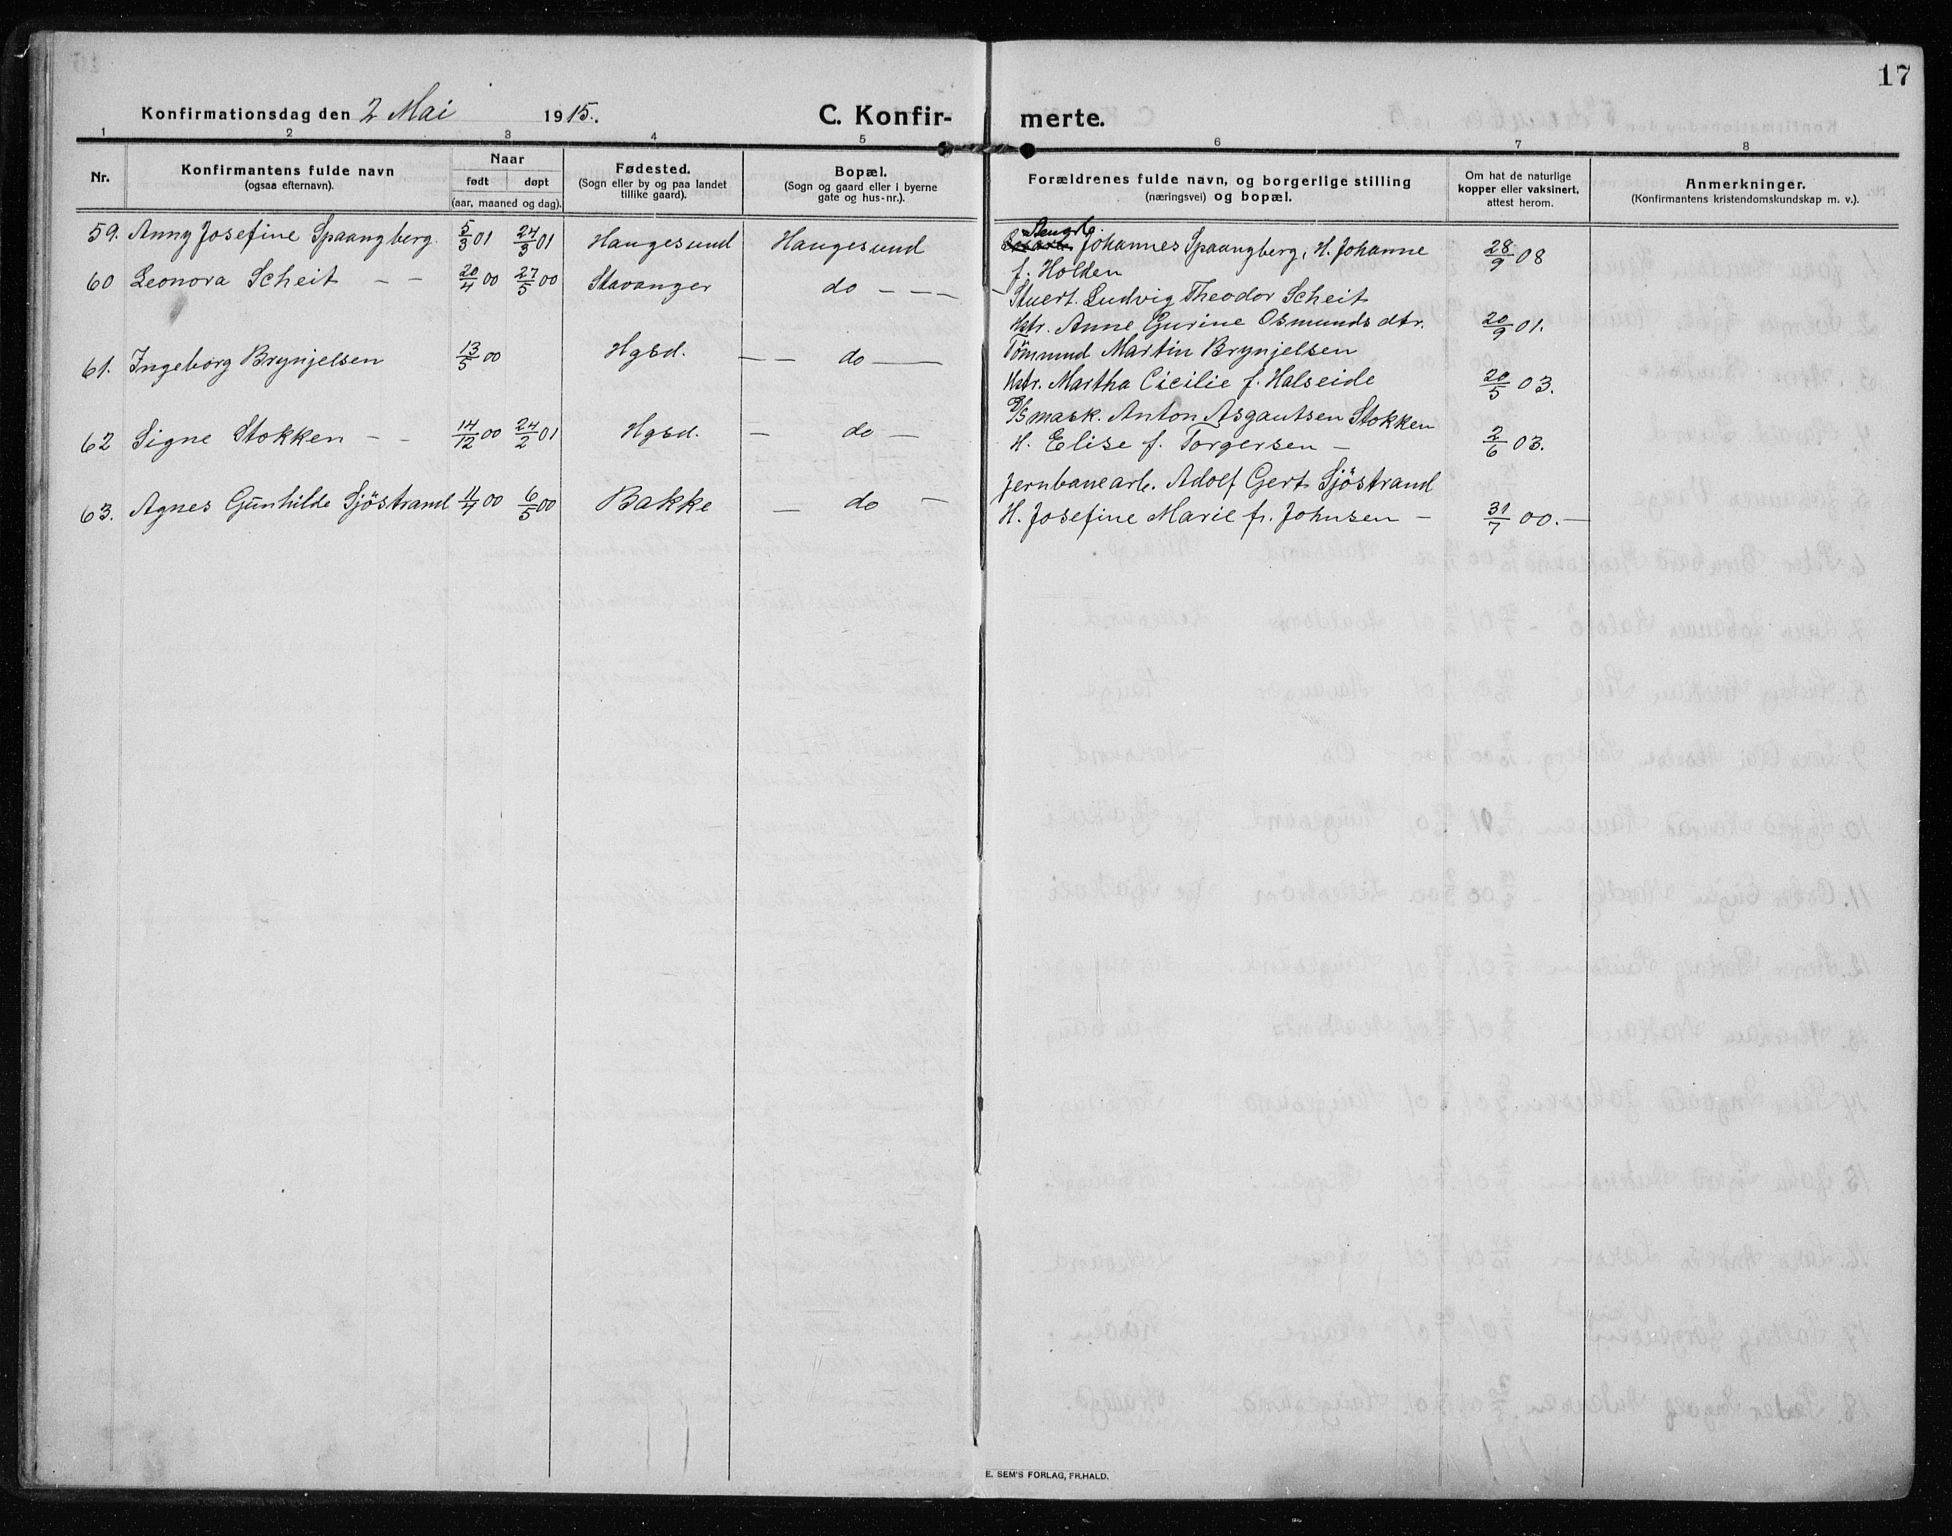 17
Konfirmationsdag den 2 Mai 1915.
C. Konfir- merte.
1 2 3 4 5 6 7 8
Nr.
Konfirmantens fulde navn
(ogsaa efternavn).
Naar
født døpt
(aar, maaned og dag).
Fødested.
(Sogn eller by og paa landet
tillike gaard).
Bopæl.
(Sogn og gaard eller i byerne
gate og hus-nr.).
Forældrenes fulde navn, og borgerlige stilling
(næringsvei) og bopæl.
Om hat de naturlige
kopper eller vaksinert,
attest herom.
Anmerkninger.
(Konfirmantens kristendomskundskap m. v.).
59. Anny Josefine Spaangberg 5/3 01 24/3 01 Haugesund Haugesund Johannes Spaangberg, H. Johanne 28/9 08
f. Holden
60 Leonora Scheit - - 20/4 00 27/5 00 Stavanger do - - - Stuert. Ludvig Theodor Scheit
Hstr. Anne Gurine Osmundsdtr. 20/9 01.
61. Ingeborg Brynjelsen 13/5 00 Hgsd. - - do - Tömmmd Martin Brynjelsen
Hstr. Martha Cicilie f. Halseide 20/5 03.
62 Signe Stokken - - 14/12 00 24/2 01 Hgsd. - do - D/S mask. Anton Asgautsen Stokken
H. Elise f. Torgersen - 2/6 03.
63. Agnes Gunhilde Sjöstrand 11/4 00 6/5 00 Bakke - do - Jernbanearb. Adolf Gert Sjöstrand
H. Josefine Marie f. Johnsen - 31/7 00. -
E. SEM'S FORLAG, FR.HALD.